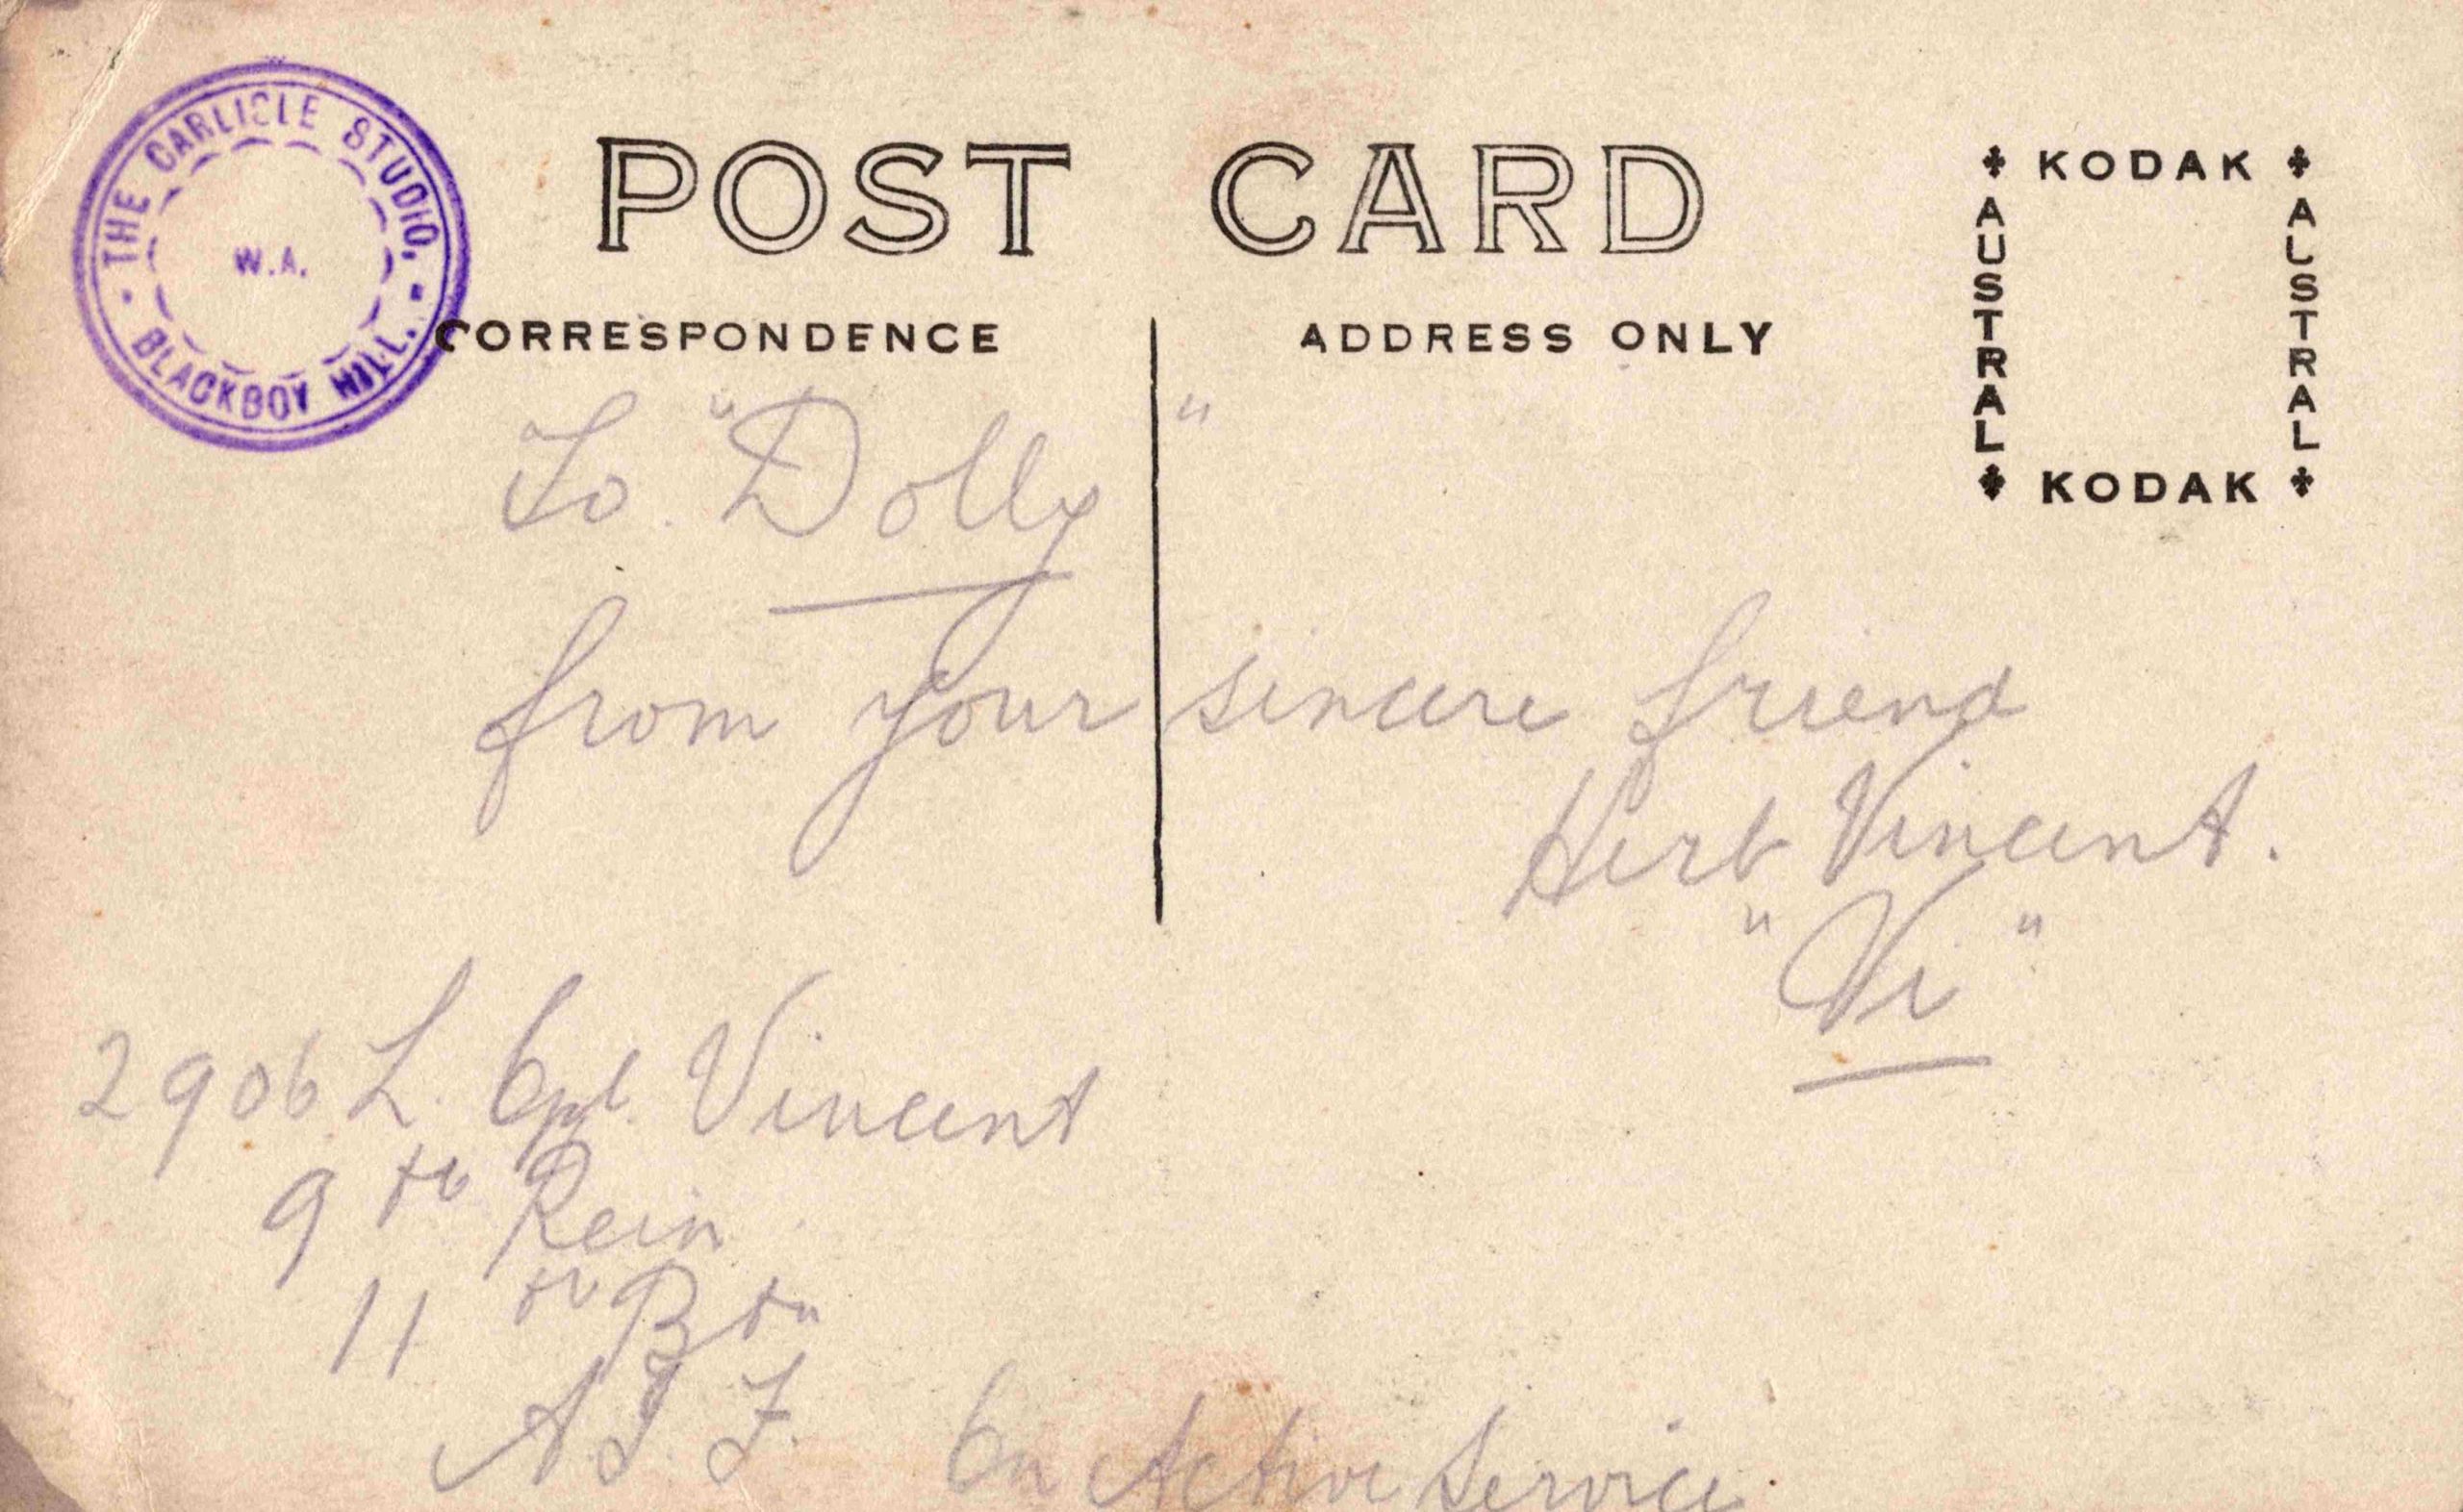 THE CARLISLE STUDIO,
W.A.
BLACKBOY HILL.
POST CARD
CORRESPONDENCE
ADDRESS ONLY
KODAK
AUSTRAL
AUSTRAL
KODAK
To "Dolly"
from your sincere friend
Herb Vincent.
"Vi"
2906 L. Cpl. Vincent
9th Rein
11th Btn
A.I.F. On Active Service.